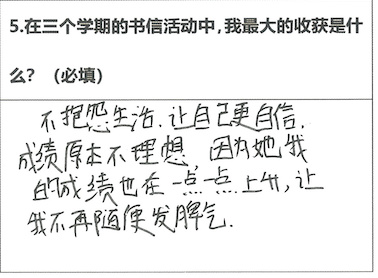 5.在三个学期的书信活动中,我最大的收获是什
么？（必填）
不抱怨生活.让自己更自信.
成绩原本不理想，因为她我
的成绩也在一点一点上升,让
我不再随便发脾气.